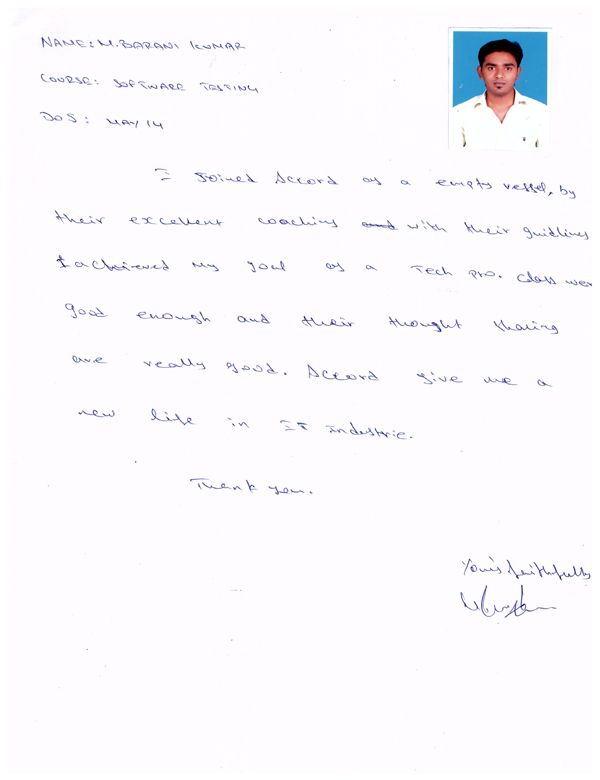 NAME: M. BARANI KUMAR
COURSE: SOFTWARE TESTING
DOS: MAY/14
I Joined Accord as a empty vessel, by
their excellent coaching and with their guidlines
I achieved my goal as a Tech pro. class wer
good enough and their thought sharing
are really good. Accord give me a
new life in IT industrie.
Thank you.
Your's faithfully